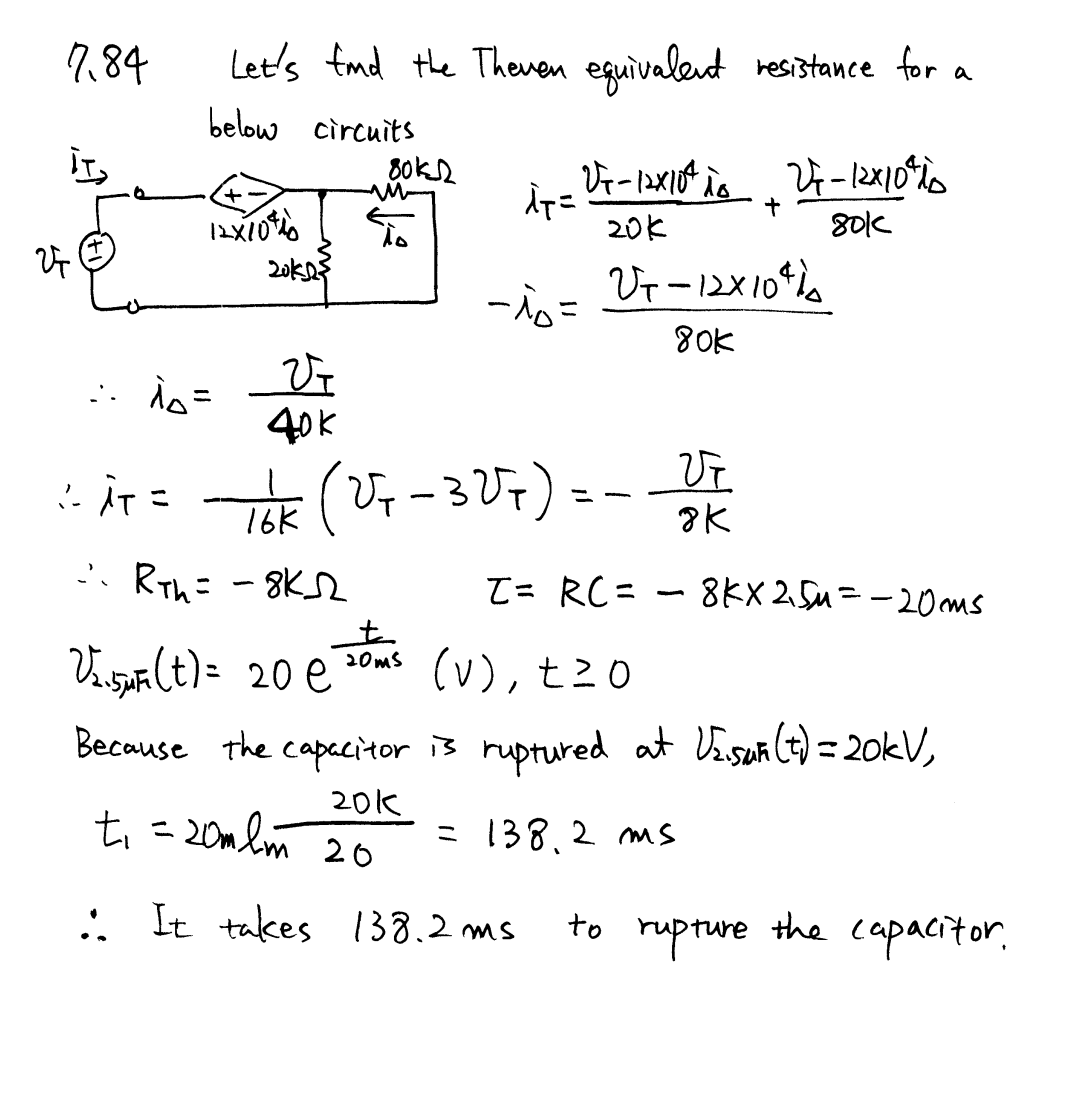 7.84 Let's find the Theven equivalent resistance for a
below circuits
iT
80kΩ
+ −
12×10⁴iΔ
iΔ
vT
+
−
20kΩ
iT = (vT − 12×10⁴ iΔ)/20K + (vT − 12×10⁴ iΔ)/80K
−iΔ = (vT − 12×10⁴ iΔ)/80K
∴ iΔ = vT/40K
∴ iT = 1/16K (vT − 3vT) = − vT/8K
∴ RTh = −8KΩ τ = RC = − 8K×2.5μ = −20ms
v2.5μF(t) = 20 e^(t/20ms) (V), t ≥ 0
Because the capacitor is ruptured at v2.5μF(t₁) = 20kV,
t₁ = 20m ln 20K/20 = 138.2 ms
∴ It takes 138.2 ms to rupture the capacitor.